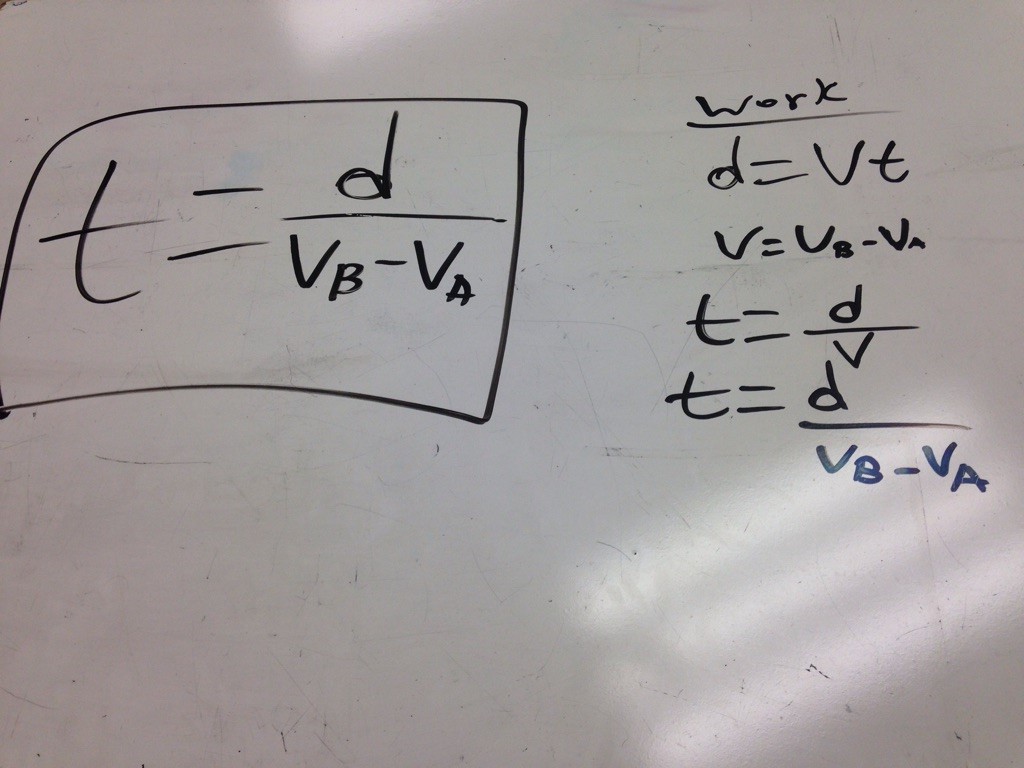 t = d / (VB - VA)
work
d = Vt
V = VB - VA
t = d / V
t = d / (VB - VA)